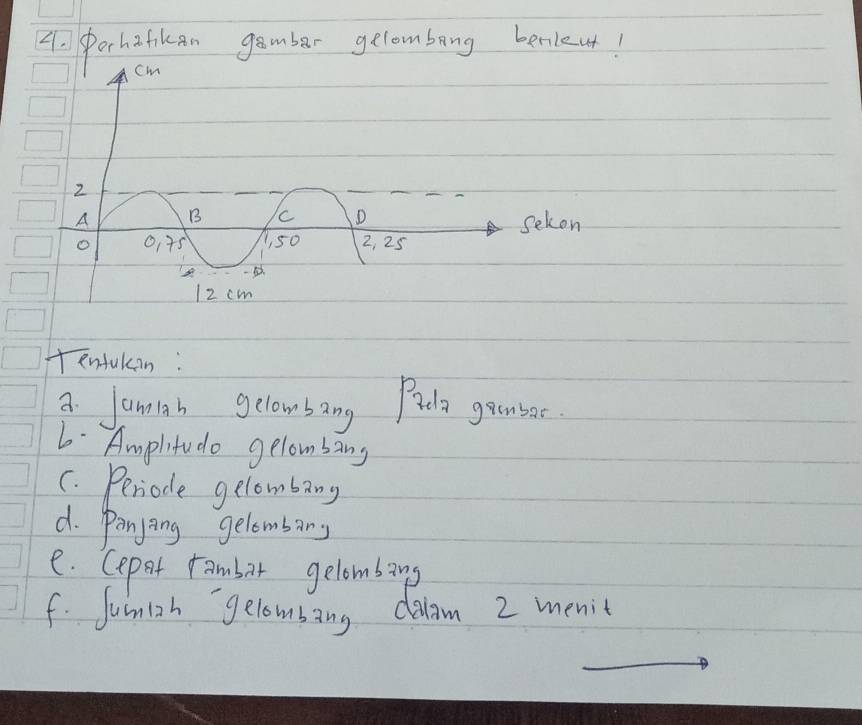 4. Perhatikan gambar gelombang berikut !
cm
2
A B C D
Sekon
0 0,75 1,50 2,25
12 cm
Tentukan :
a. Jumlah gelombang Pada gambar.
b. Amplitudo gelombang
c. Periode gelombang
d. Panjang gelombang
e. Cepat rambat gelombang
f. Jumlah gelombang dalam 2 menit